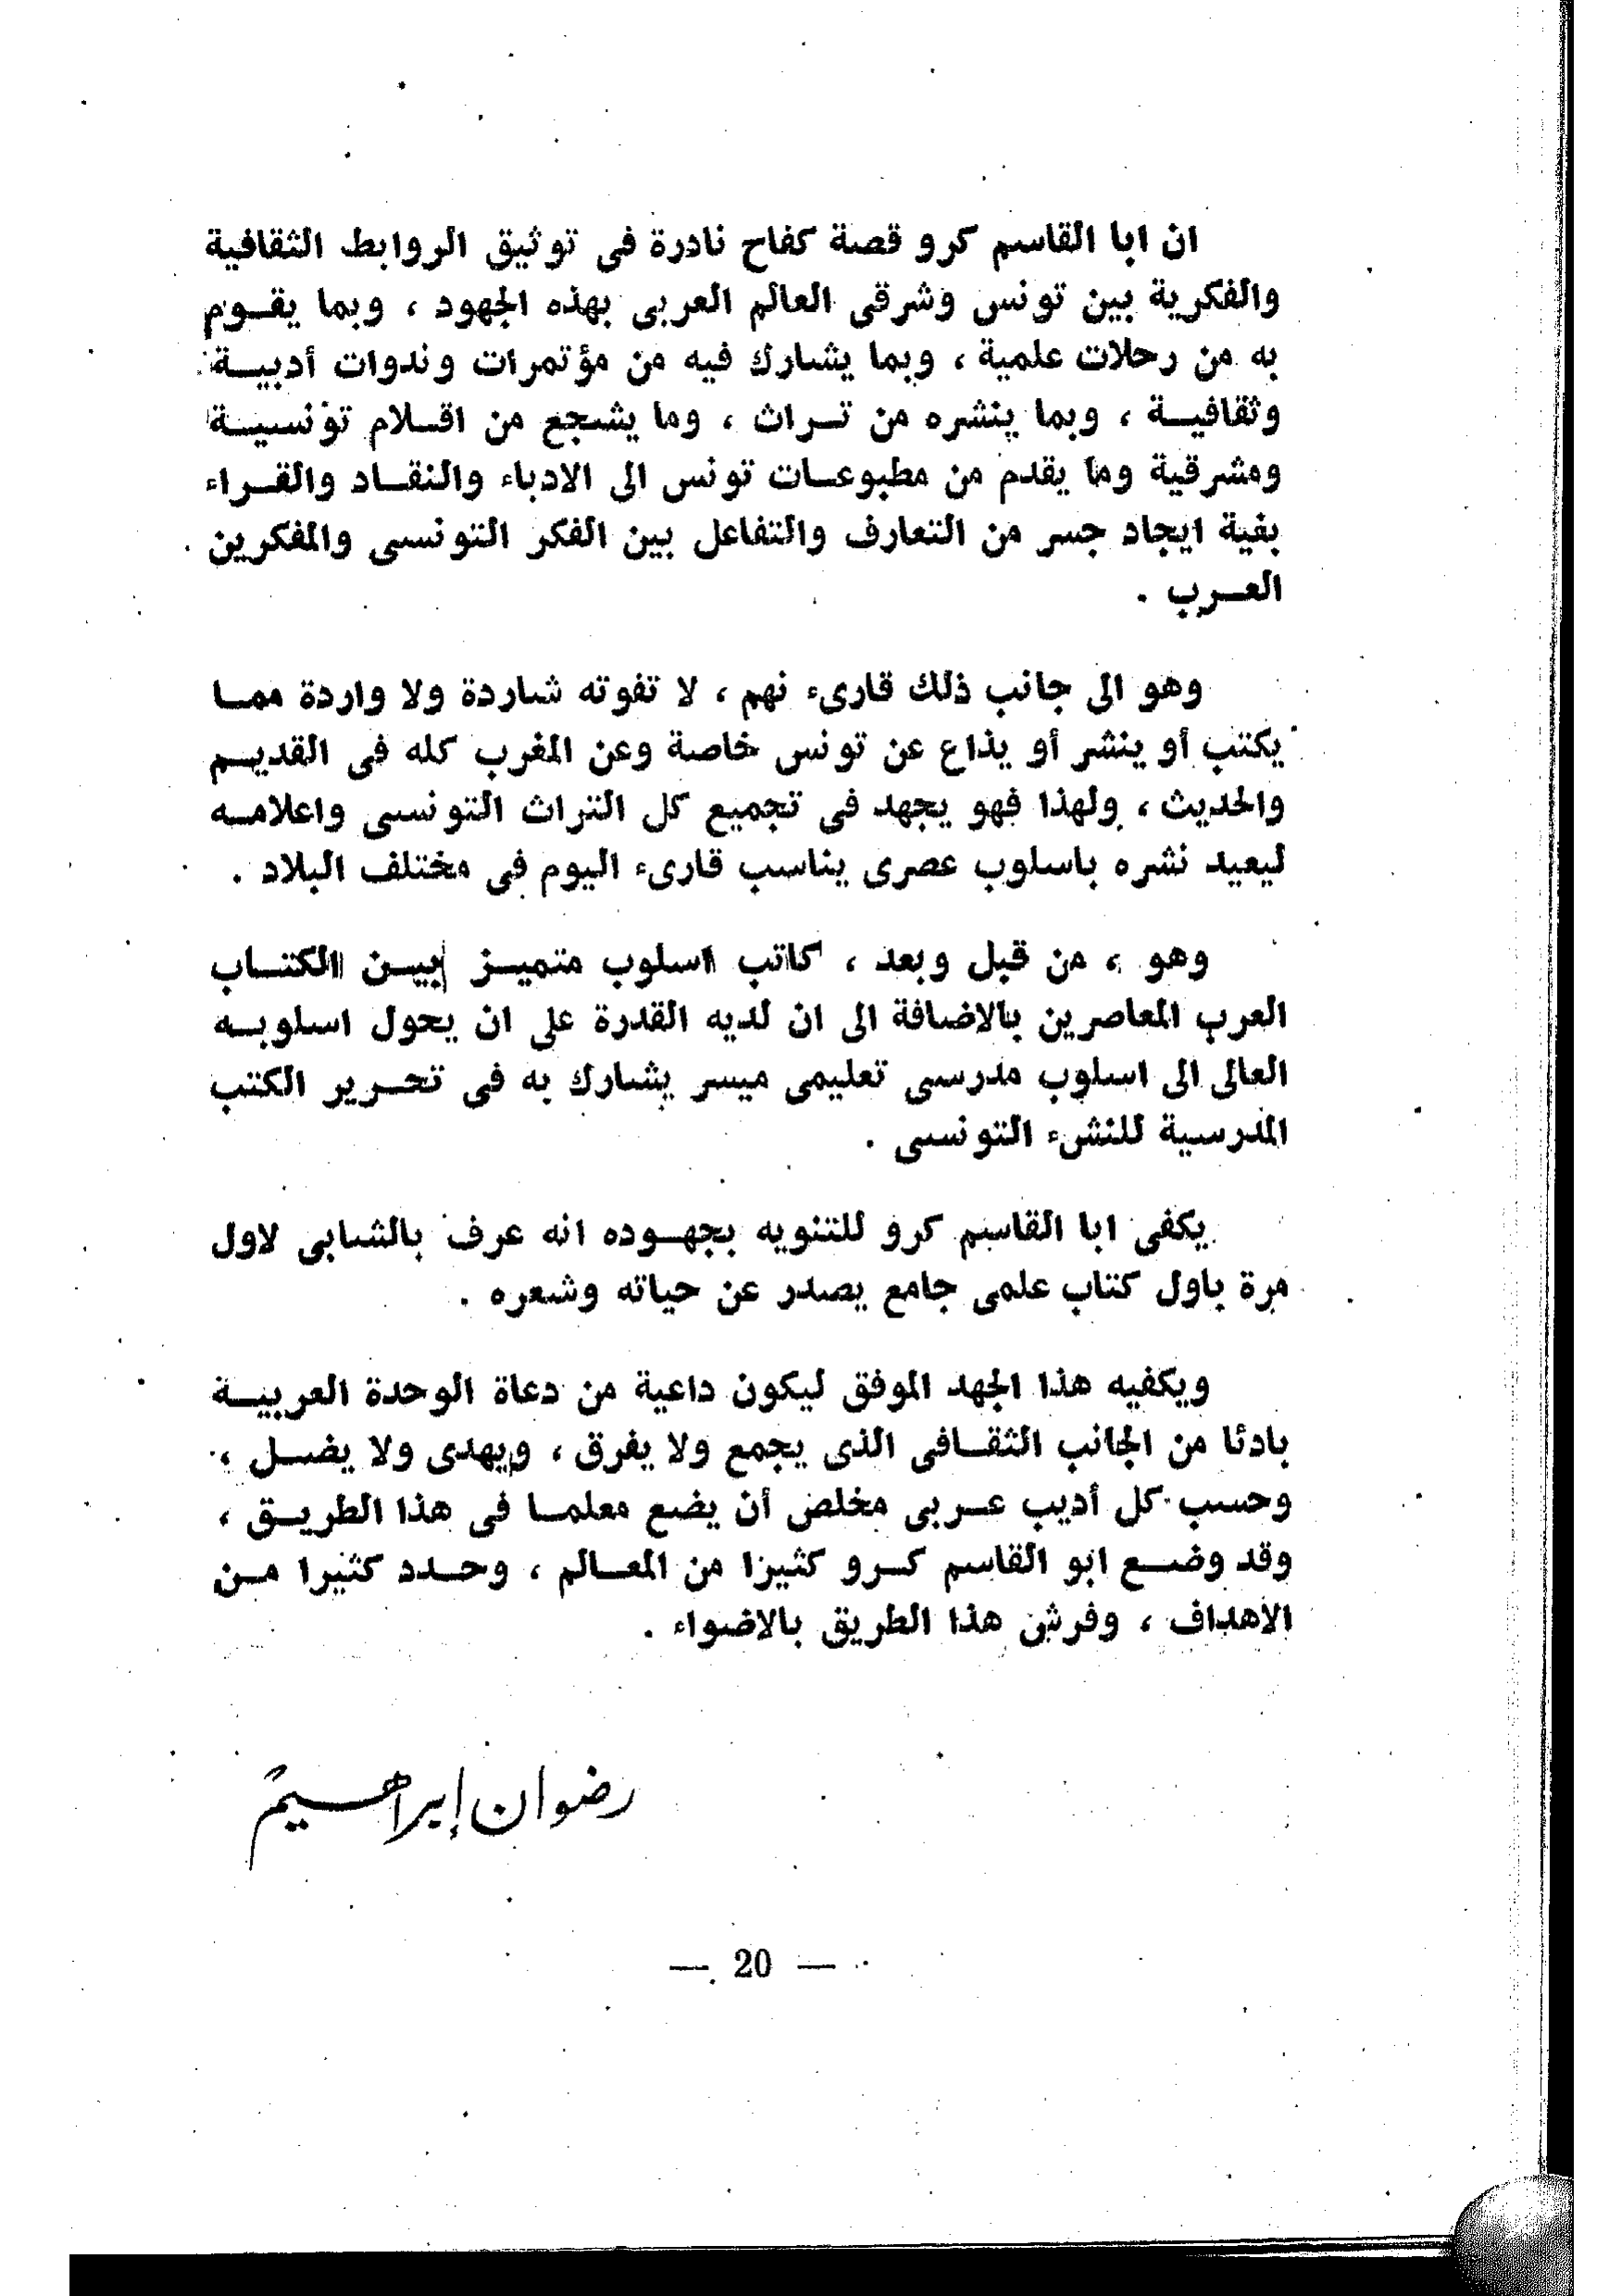 ان ابا القاسم كرو قصة كفاح نادرة فى توثيق الروابط الثقافية
والفكرية بين تونس وشرقى العالم العربى بهذه الجهود ، وبما يقوم
به من رحلات علمية ، وبما يشارك فيه من مؤتمرات وندوات أدبية
وثقافية ، وبما ينشره من تراث ، وما يشجع من اقلام تونسية
ومشرقية وما يقدم من مطبوعات تونس الى الادباء والنقاد والقراء
بغية ايجاد جسر من التعارف والتفاعل بين الفكر التونسى والمفكرين
العرب .
وهو الى جانب ذلك قارىء نهم ، لا تفوته شاردة ولا واردة مما
يكتب أو ينشر أو يذاع عن تونس خاصة وعن المغرب كله فى القديم
والحديث ، ولهذا فهو يجهد فى تجميع كل التراث التونسى واعلامه
ليعيد نشره باسلوب عصرى يناسب قارىء اليوم فى مختلف البلاد .
وهو ، من قبل وبعد ، كاتب اسلوب متميز بين الكتاب
العرب المعاصرين بالاضافة الى ان لديه القدرة على ان يحول اسلوبه
العالى الى اسلوب مدرسى تعليمى ميسر يشارك به فى تحرير الكتب
المدرسية للنشىء التونسى .
يكفى ابا القاسم كرو للتنويه بجهوده انه عرف بالشابى لاول
مرة باول كتاب علمى جامع يصدر عن حياته وشعره .
ويكفيه هذا الجهد الموفق ليكون داعية من دعاة الوحدة العربية
بادئا من الجانب الثقافى الذى يجمع ولا يفرق ، ويهدى ولا يضل ،
وحسب كل أديب عربى مخلص أن يضع معلما فى هذا الطريق ،
وقد وضع ابو القاسم كرو كثيرا من المعالم ، وحدد كثيرا من
الاهداف ، وفرش هذا الطريق بالاضواء .
رضوان إبراهيم
— 20 —